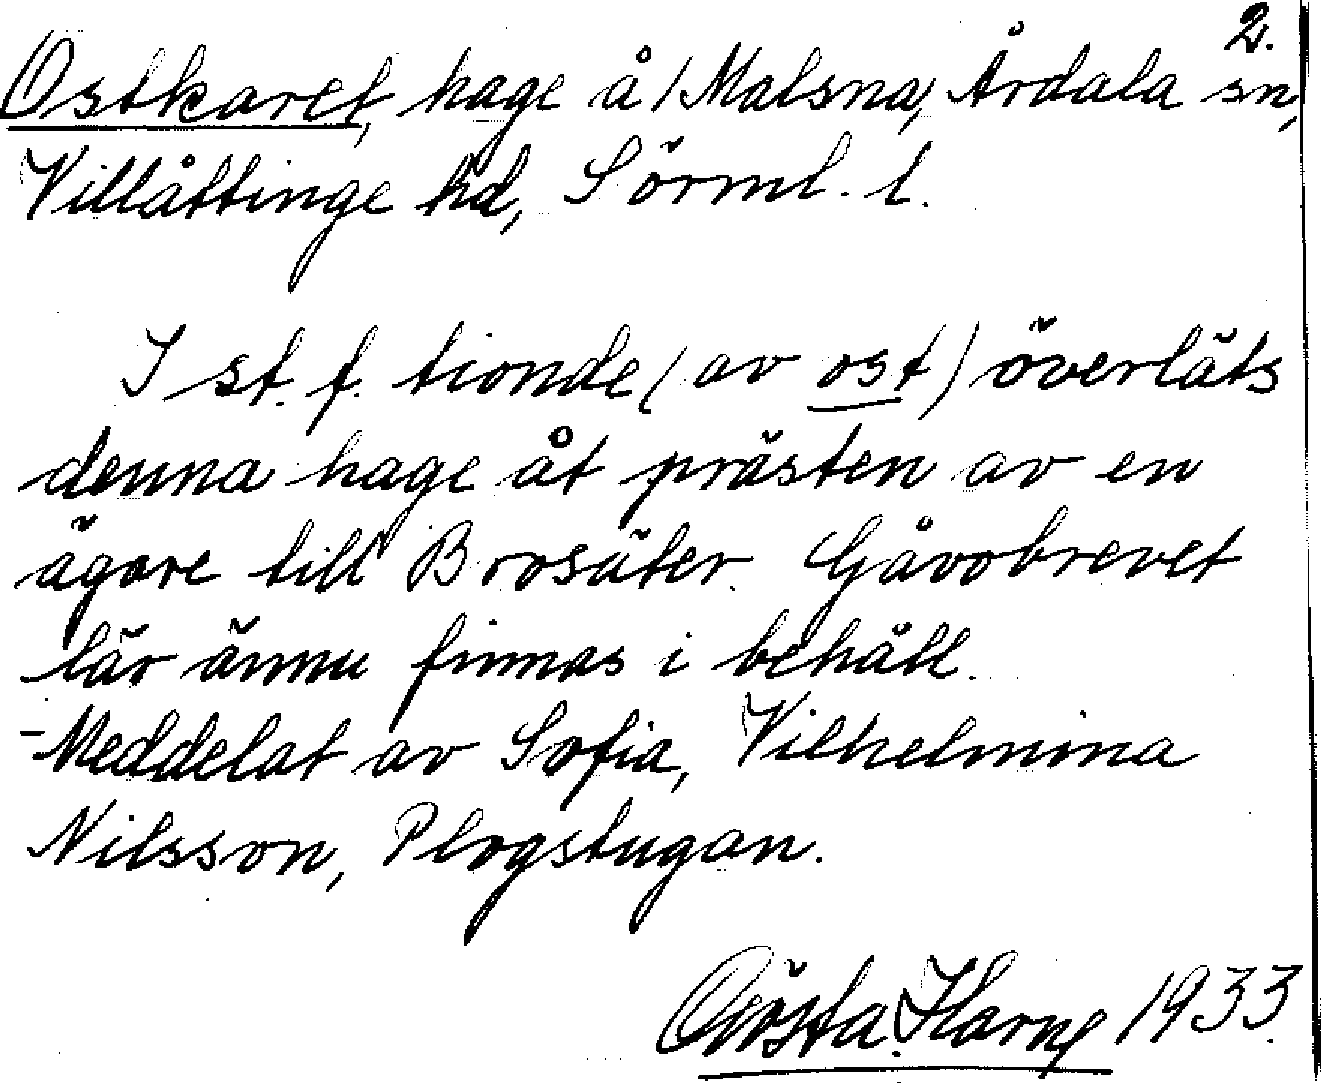 2.
Ostkaret, hage å / Malsna, Årdala sn,
Villåttinge hd, Sörml. l.
I st. f. tionde (av ost) överläts
denna hage åt prästen av en
ägare till Brosäter. Gåvobrevet
lär ännu finnas i behåll.
-Meddelat av Sofia, Vilhelmina
Nilsson, Plogstugan.
Gösta 1933.